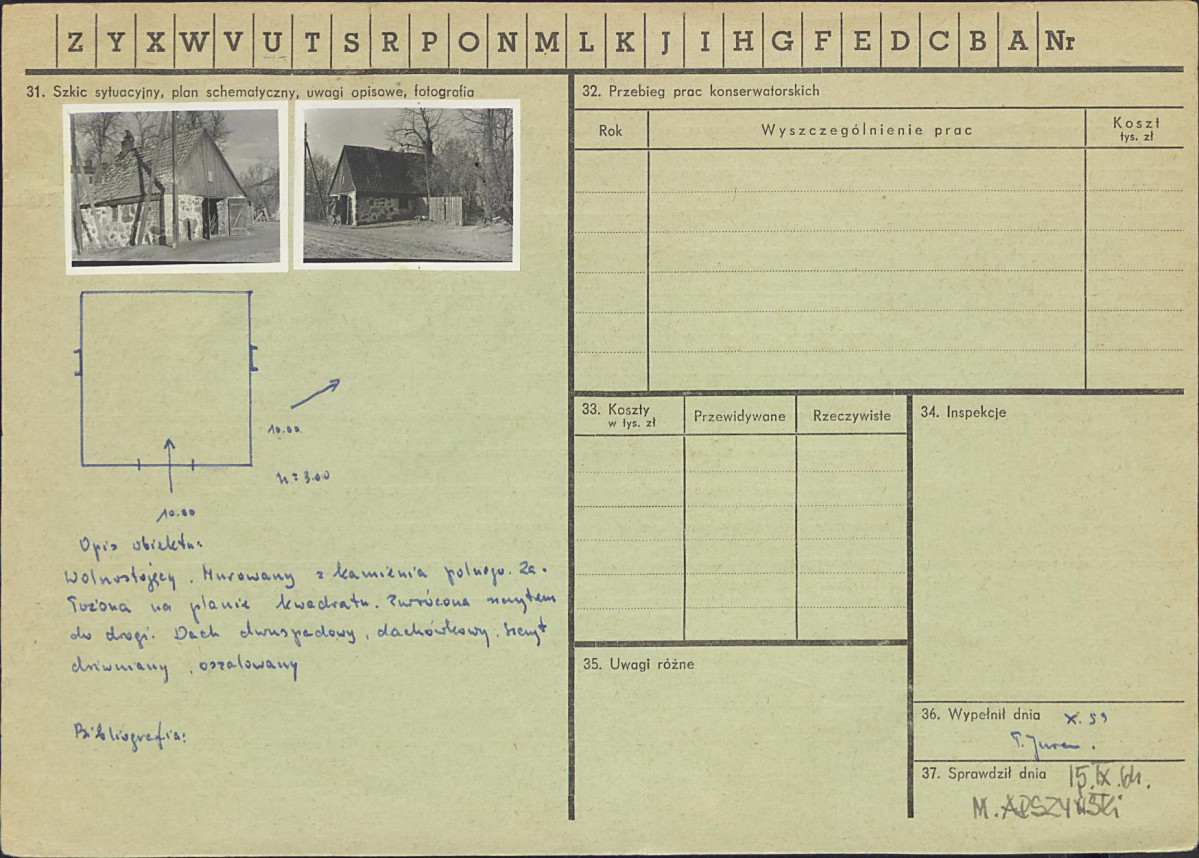 Z Y X W V U T S R P O N M L K J I H G F E D C B A Nr
31. Szkic sytuacyjny, plan schematyczny, uwagi opisowe, fotografia
10.00
h = 3.00
10.00
Opis obiektu:
Wolnostojący. Murowany z kamienia polnego. Za-
łożona na planie kwadratu. Zwrócona szczytem
do drogi. Dach dwuspadowy, dachówkowy. Szczyt
drewniany, oszalowany
Bibliografia:
32. Przebieg prac konserwatorskich
Rok
Wyszczególnienie prac
Koszt
tys. zł
33. Koszty
w tys. zł
Przewidywane
Rzeczywiste
34. Inspekcje
35. Uwagi różne
36. Wypełnił dnia X. 59
37. Sprawdził dnia 15.IX.64.
M. ARSZYŃSKI